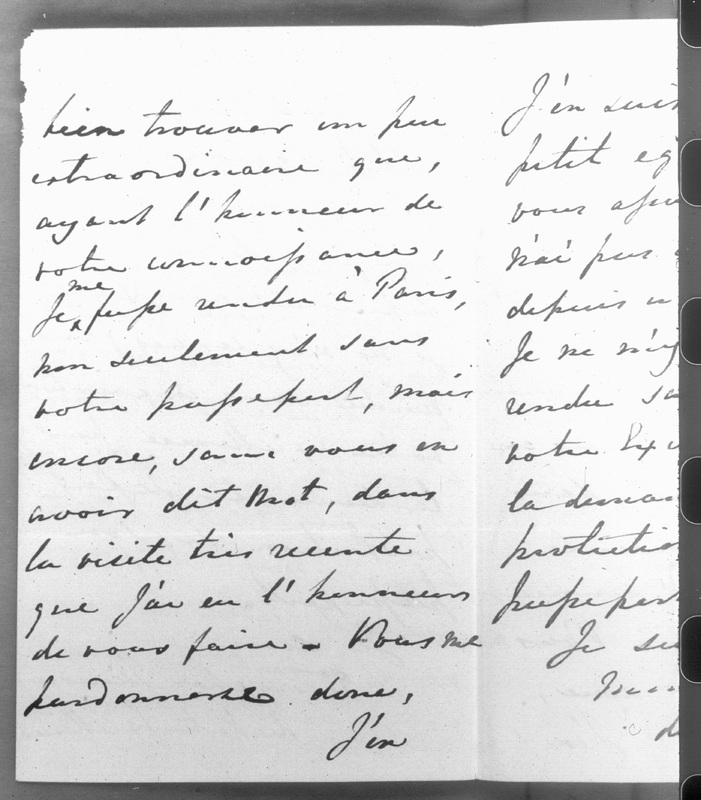 bien trouver un peu
extraordinaire que,
ayant l'honneur de
votre connoissance,
me
Je fusse rendu à Paris,
non seulement sans
votre passeport, mais
encore, sans vous en
avoir dit mot, dans
la visite très recente
que J'ai eu l'honneur
de vous faire - Vous me
pardonnerez donc,
J'en
J'en suis
petit
vous
n'ai pas
depuis
Je ne
rendu
votre
la
Je